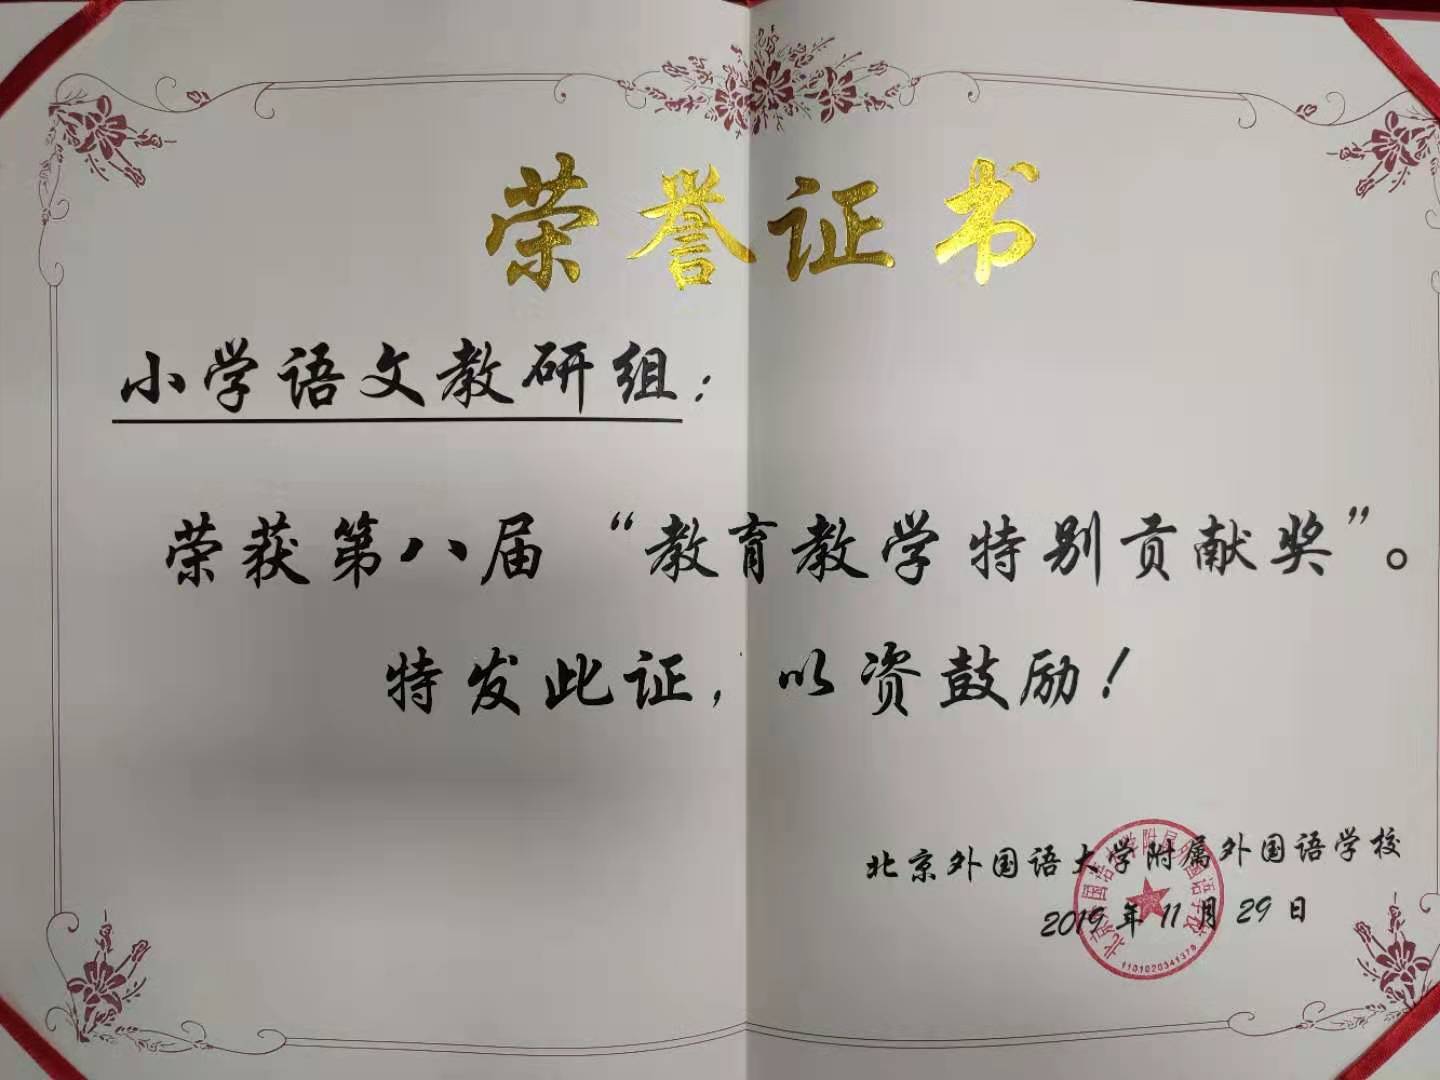 荣誉证书
小学语文教研组：
荣获第八届“教育教学特别贡献奖”。
特发此证，以资鼓励！
北京外国语大学附属外国语学校
2019年11月29日
北京外国语大学附属外国语学校
1101020341379